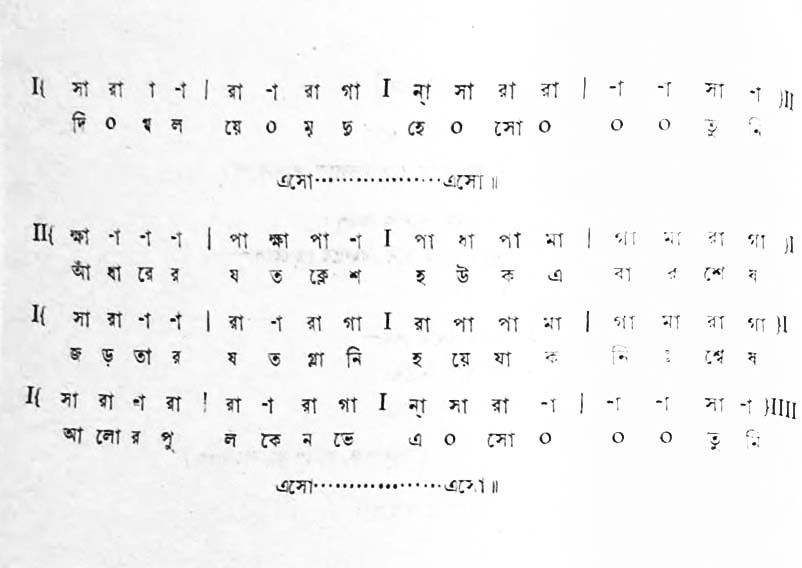 I{ সা রা া -া | রা -া রা গা I ন্া সা রা রা | -া -া সা -া }II
দি ০ গ্ব ল য়ে ০ মৃ ঢ় হে ০ সো ০ ০ ০ তু মি
এসো··················এসো॥
II{ ক্ষা -া -া -া | পা ক্ষা পা -া I পা ধা পা মা | গা মা রা গা }I
আঁ ধা রে র য ত ক্লে শ হ উ ক এ বা র শে ষ
I{ সা রা -া -া | রা -া রা গা I রা পা পা মা | গা মা রা গা }I
জ ড় তা র য ত গ্লা নি হ য়ে যা ক নি ঃ শে ষ
I{ সা রা -া রা | রা -া রা গা I ন্া সা রা -া | -া -া সা -া }IIII
আ লো র পু ল কে ন ভে এ ০ সো ০ ০ ০ তু মি
এসো··················এসো॥